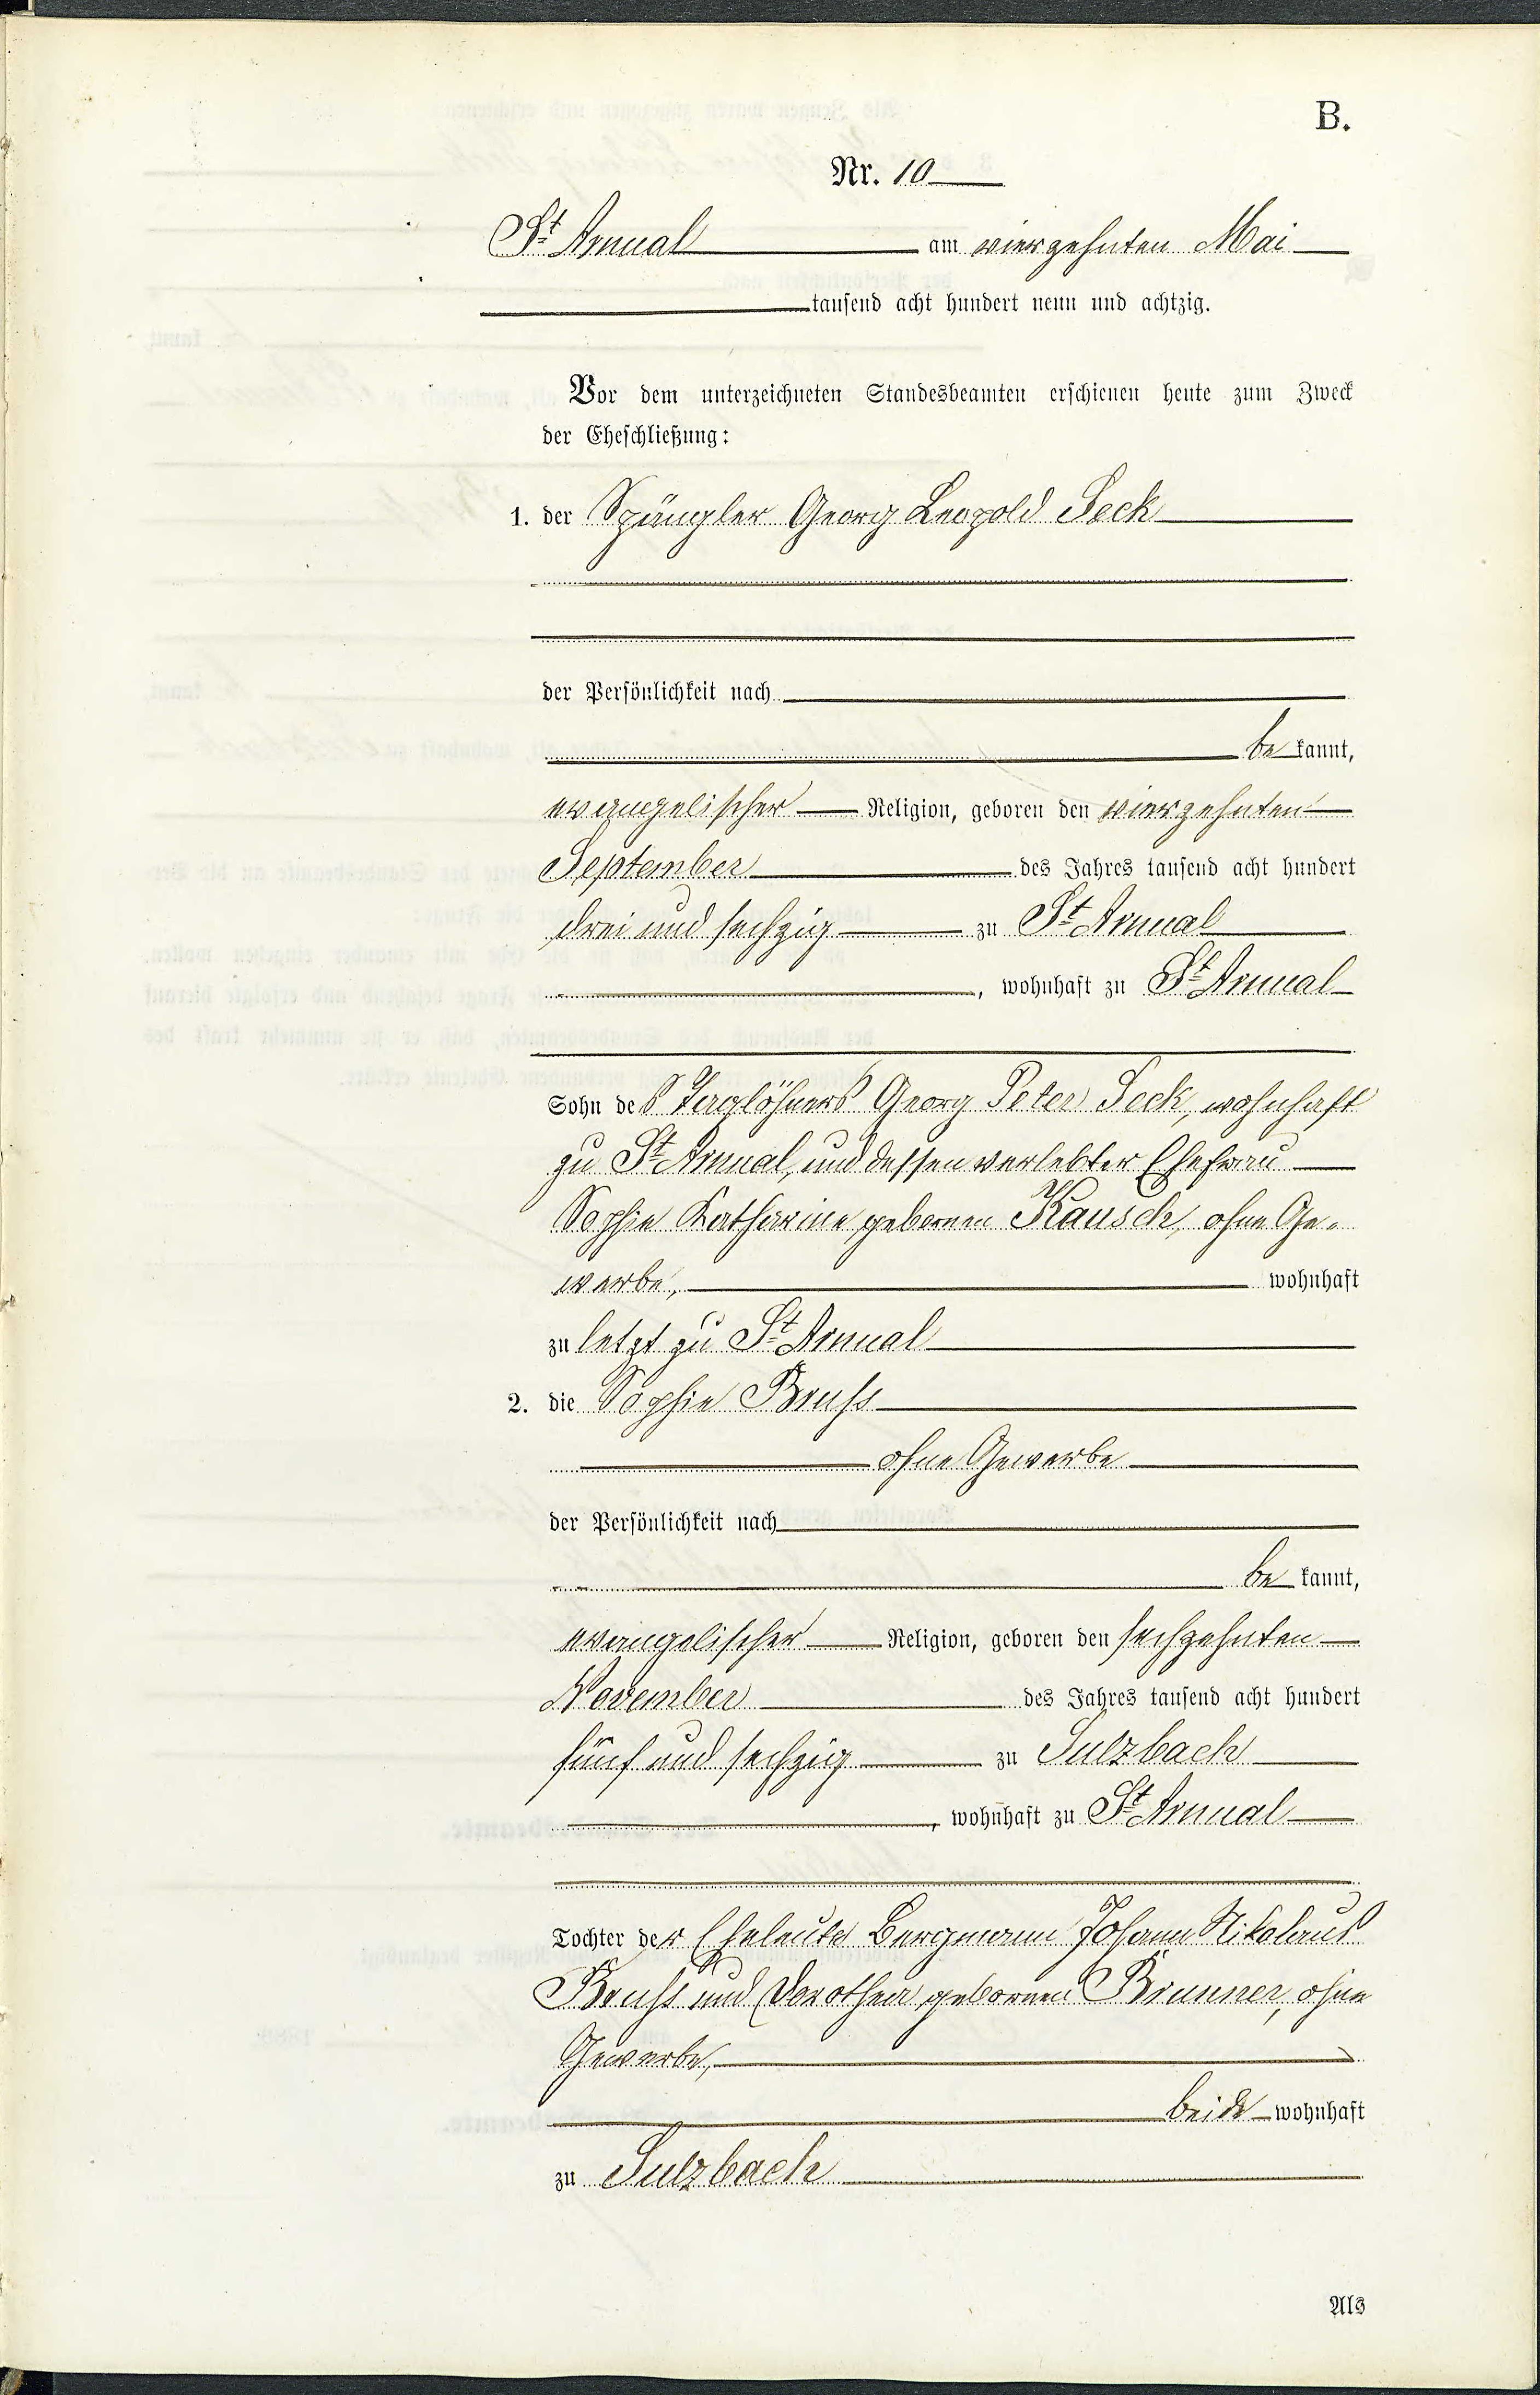 B.
Nr. 10
St Arnual am vierzehnten Mai
tausend acht hundert neun und achtzig.
Vor dem unterzeichneten Standesbeamten erschienen heute zum Zweck
der Eheschließung:
1. der Spängler Georg Leopold Seck
der Persönlichkeit nach
be kannt,
evangelischer Religion, geboren den vierzehnten
September des Jahres tausend acht hundert
drei und sechzig zu St Arnual
, wohnhaft zu St Arnual
Sohn des Taglöhners Georg Peter Seck, wohnhaft
zu St Arnual, und dessen verlebter Ehefrau
Sophie Katharine gebornen Kausch, ohne Ge-
werbe, wohnhaft
zu letzt zu St Arnual
2. die Sophie Bruß
ohne Gewerbe
der Persönlichkeit nach
be kannt,
evangelischer Religion, geboren den sechzehnten
November des Jahres tausend acht hundert
fünf und sechzig zu Sulzbach
, wohnhaft zu St Arnual
Tochter der Eheleute Bergmann Johann Nikolaus
Bruß und Dorothea gebornen Brunner, ohne
Gewerbe,
beide wohnhaft
zu Sulzbach
Als